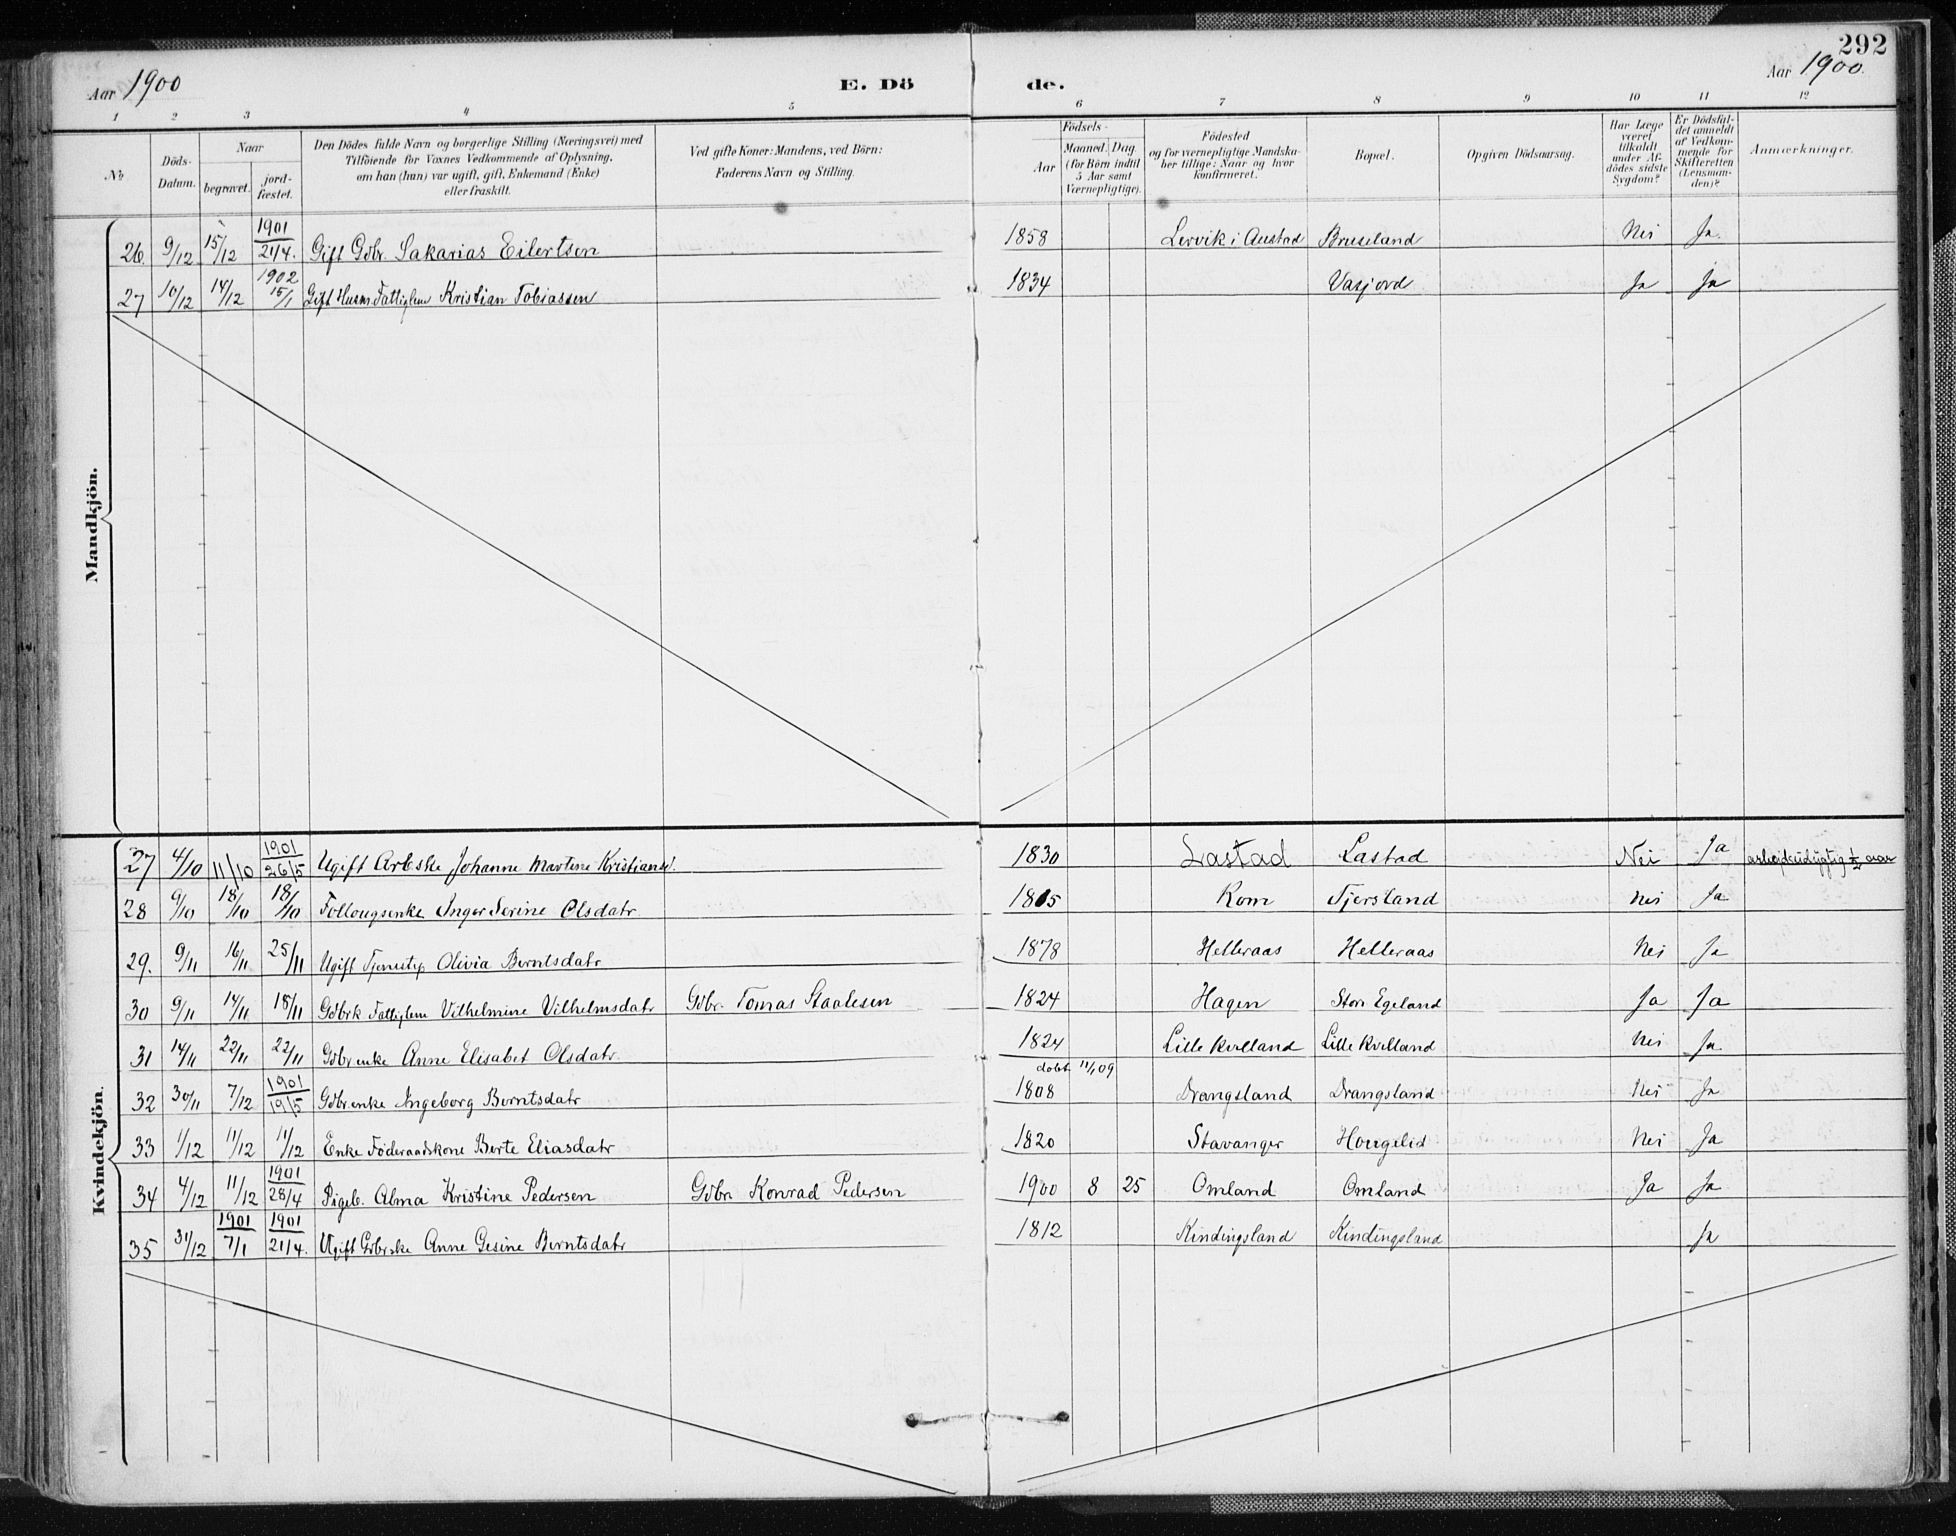 292
Aar 1900 E. Dö de. Aar 1900.
1 2 3 4 5 6 7 8 9 10 11 12
No. Döds-Datum. Naar begravet. jordfæstet. Den Dödes fulde Navn og borgerlige Stilling (Næringsvei) med Tilföiende for Voxnes Vedkommende af Oplysning, om han (hun) var ugift, gift, Enkemand (Enke) eller fraskilt. Ved gifte Koner: Mandens, ved Börn: Faderens Navn og Stilling. Födsels- Aar Maaned. Dag. (for Börn indtil 5 Aar samt Værnepligtige). Födested og for værnepligtige Mandskaber tillige: Naar og hvor konfirmeret. Bopæl. Opgiven Dödsaarsag. Har Læge været tilkaldt under Afdödes sidste Sygdom? Er Dödsfaldet anmeldt af Vedkommende for Skifteretten (Lensmanden)? Anmærkninger.
Mandkjön.
26. 9/12 15/12 1901 21/4. Gift Gdbr. Sakarias Eilertsen 1858 Lervik i Austad Bruseland Nei Ja.
27 10/12 14/12 1902 15/1 Gift Husm. Fattiglem Kristian Tobiassen 1834 Vasjord Ja Ja
Kvindekjön.
27 4/10 11/10 1901 26/5 Ugift Arbske Johanne Martine Kristiansd. 1830 Lastad Lastad Nei Ja arbejdsudygtig 1/2 aar
28 9/10 18/10 18/10 Føllougsenke Inger Serine Olsdatr 1815 Rom Tjersland Nei Ja
29. 9/11 16/11 25/11 Ugift Tjenestep Olivia Berntsdatr 1878 Helleraas Helleraas Nei Ja
30 9/11 14/11 18/11 Gdbrk Fattiglem Vilhelmine Vilhelmsdatr Gdbr. Tomas Staalesen 1824 Hagen Store Egeland Ja Ja
31 14/11 22/11 22/11 Gdbrenke Anne Elisabet Olsdatr. 1824 Lille Kvelland Lille Kvelland Nei Ja
døbt 11/1 09
32 30/11 7/12 1901 19/5 Gdbrenke Ingeborg Berntsdatr 1808 Drangsland Drangsland Nei Ja
33 1/12 11/12 11/12 Enke Föderaadskone Berte Eliasdatr 1820 Stavanger Hougelid Nei Ja
34 4/12 11/12 1901 28/4 Pigeb. Alma Kristine Pedersen Gdbr Konrad Pedersen 1900 8 25 Omland Omland Ja Ja
35 31/12 1901 7/1 1901 21/4. Ugift Gdbrske Anne Gesine Berntsdatr 1812 Kindingsland Kindingsland Ja